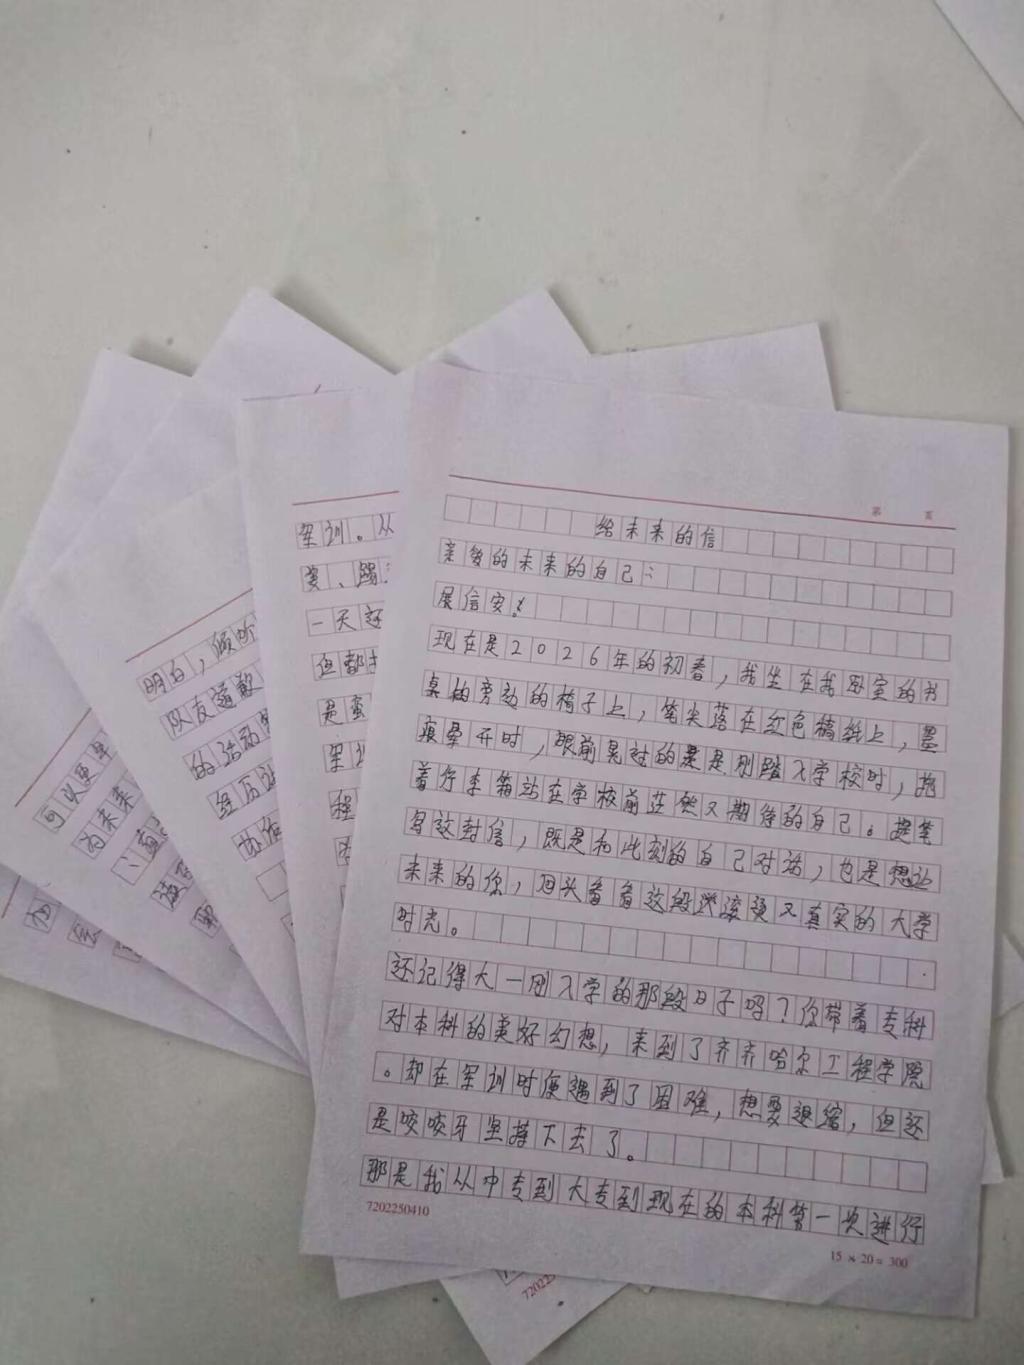 第 页
给未来的信
亲爱的未来的自己：
展信安！
现在是2026年的初春，我坐在我卧室的书
桌柏旁边的椅子上，笔尖落在红色稿纸上，墨
痕晕开时，眼前晃过的是刚踏入学校时，拖
着行李箱站在学校前茫然又期待的自己。提笔
写这封信，既是和此刻的自己对话，也是想让
未来的你，回头看看这段滚烫又真实的大学
时光。
还记得大一刚入学的那段日子吗？你带着专科
对本科的美好幻想，来到了齐齐哈尔工程学院
。却在军训时便遇到了困难，想要退缩，但还
是咬咬牙坚持下去了。
那是我从中专到大专到现在的本科第一次进行
7202250410
15 × 20 = 300
军训。从
姿、踢
一天还
但都
是蛮
军训
程
明白，倾听
队友道歉
的活动
经历
协作
可以更
为未来
720225